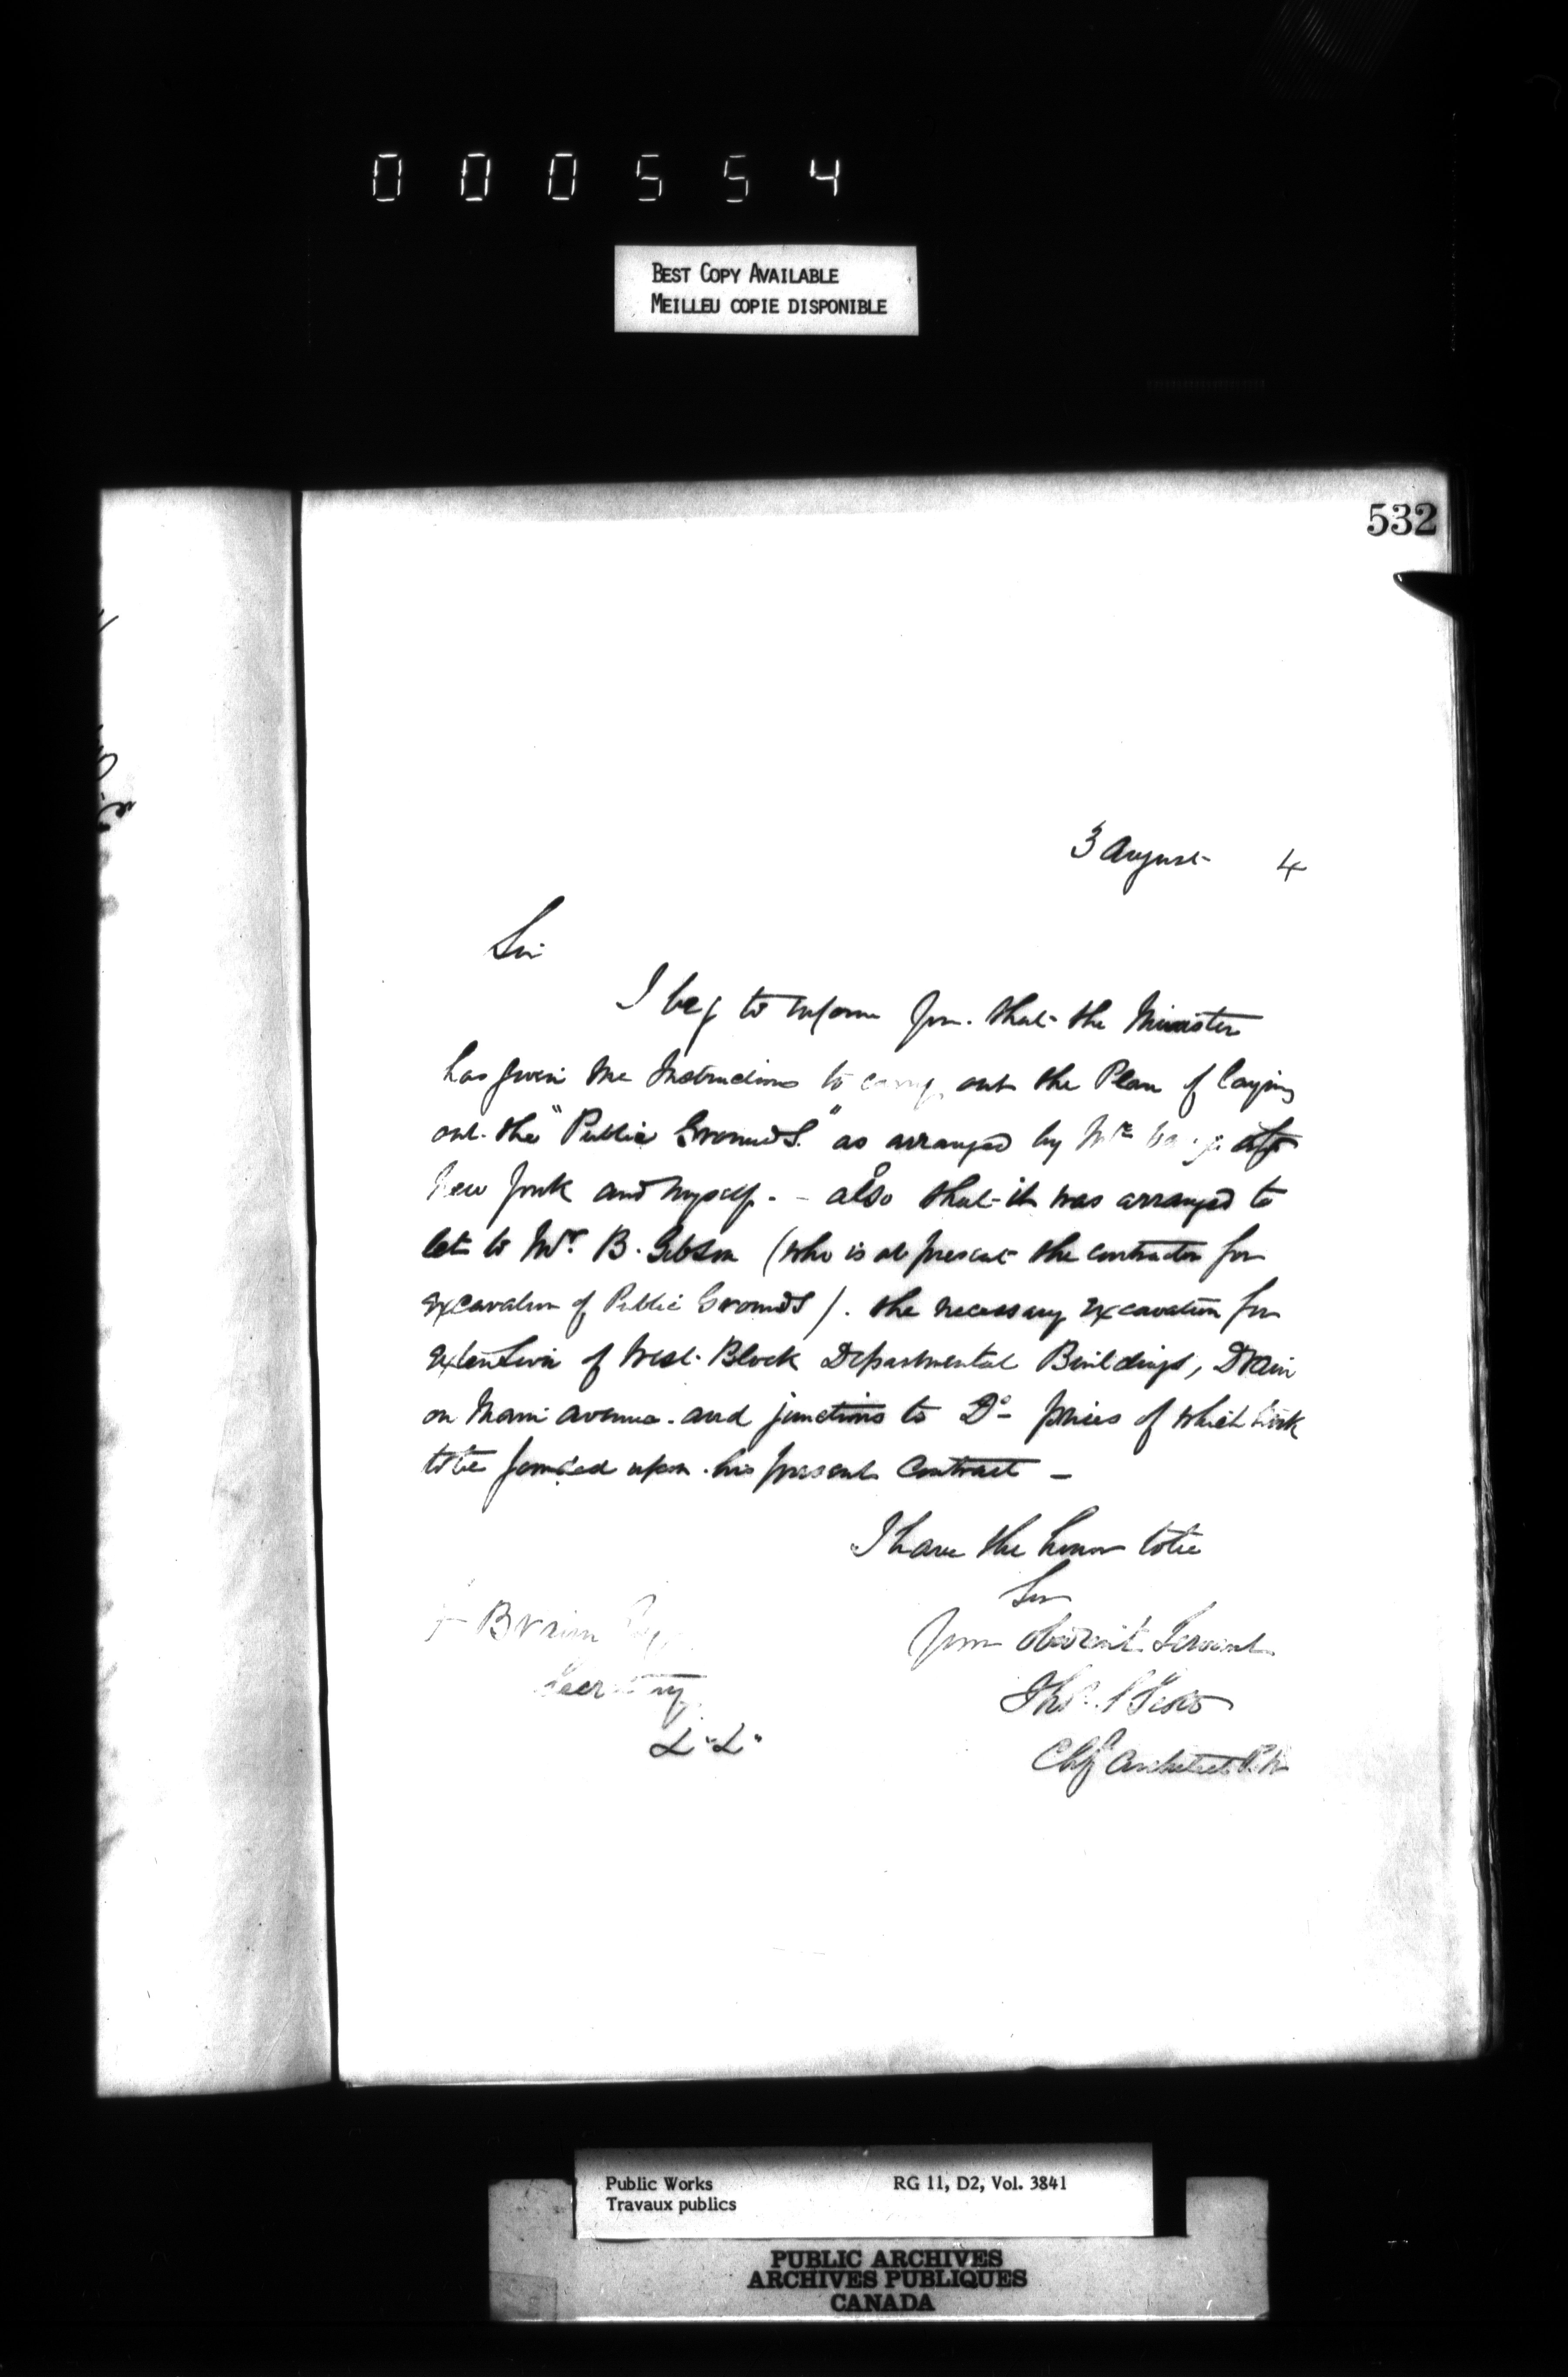 000554
BEST COPY AVAILABLE
MEILLEU COPIE DISPONIBLE
532
3 August 4
Sir
I beg to inform you. that the Minister
has given me Instructions to carry out the Plan of laying
out the "Public Grounds." as arranged by Mr of
New York and myself. - also that it was arranged to
let to Mr. B. Gibson (who is at present the contractor for
excavation of Public Grounds). the necessary excavation for
extension of West Block Departmental Buildings, Drain
on Main avenue. and junctions to Do - prices of which work
to be founded upon his present Contract -
I have the honor to be
Sir
Your obedient Servant
Thos. S Scott
Chf Architect P.W
F Braun Esq
Secretary
L"L"
Public Works RG 11, D2, Vol. 3841
Travaux publics
PUBLIC ARCHIVES
ARCHIVES PUBLIQUES
CANADA